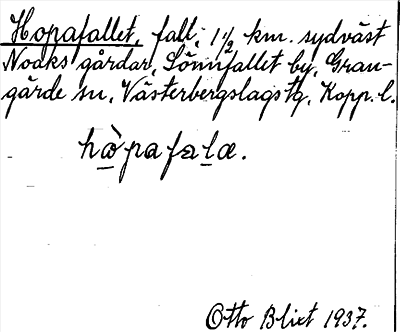 Hopafallet, fall, 1 1/2 km. sydväst
Noaks gårdar, Lönnfallet by, Gran-
gärde sn, Västerbergslags tg, Kopp. l.
hòpafala.
Otto Blixt 1937.